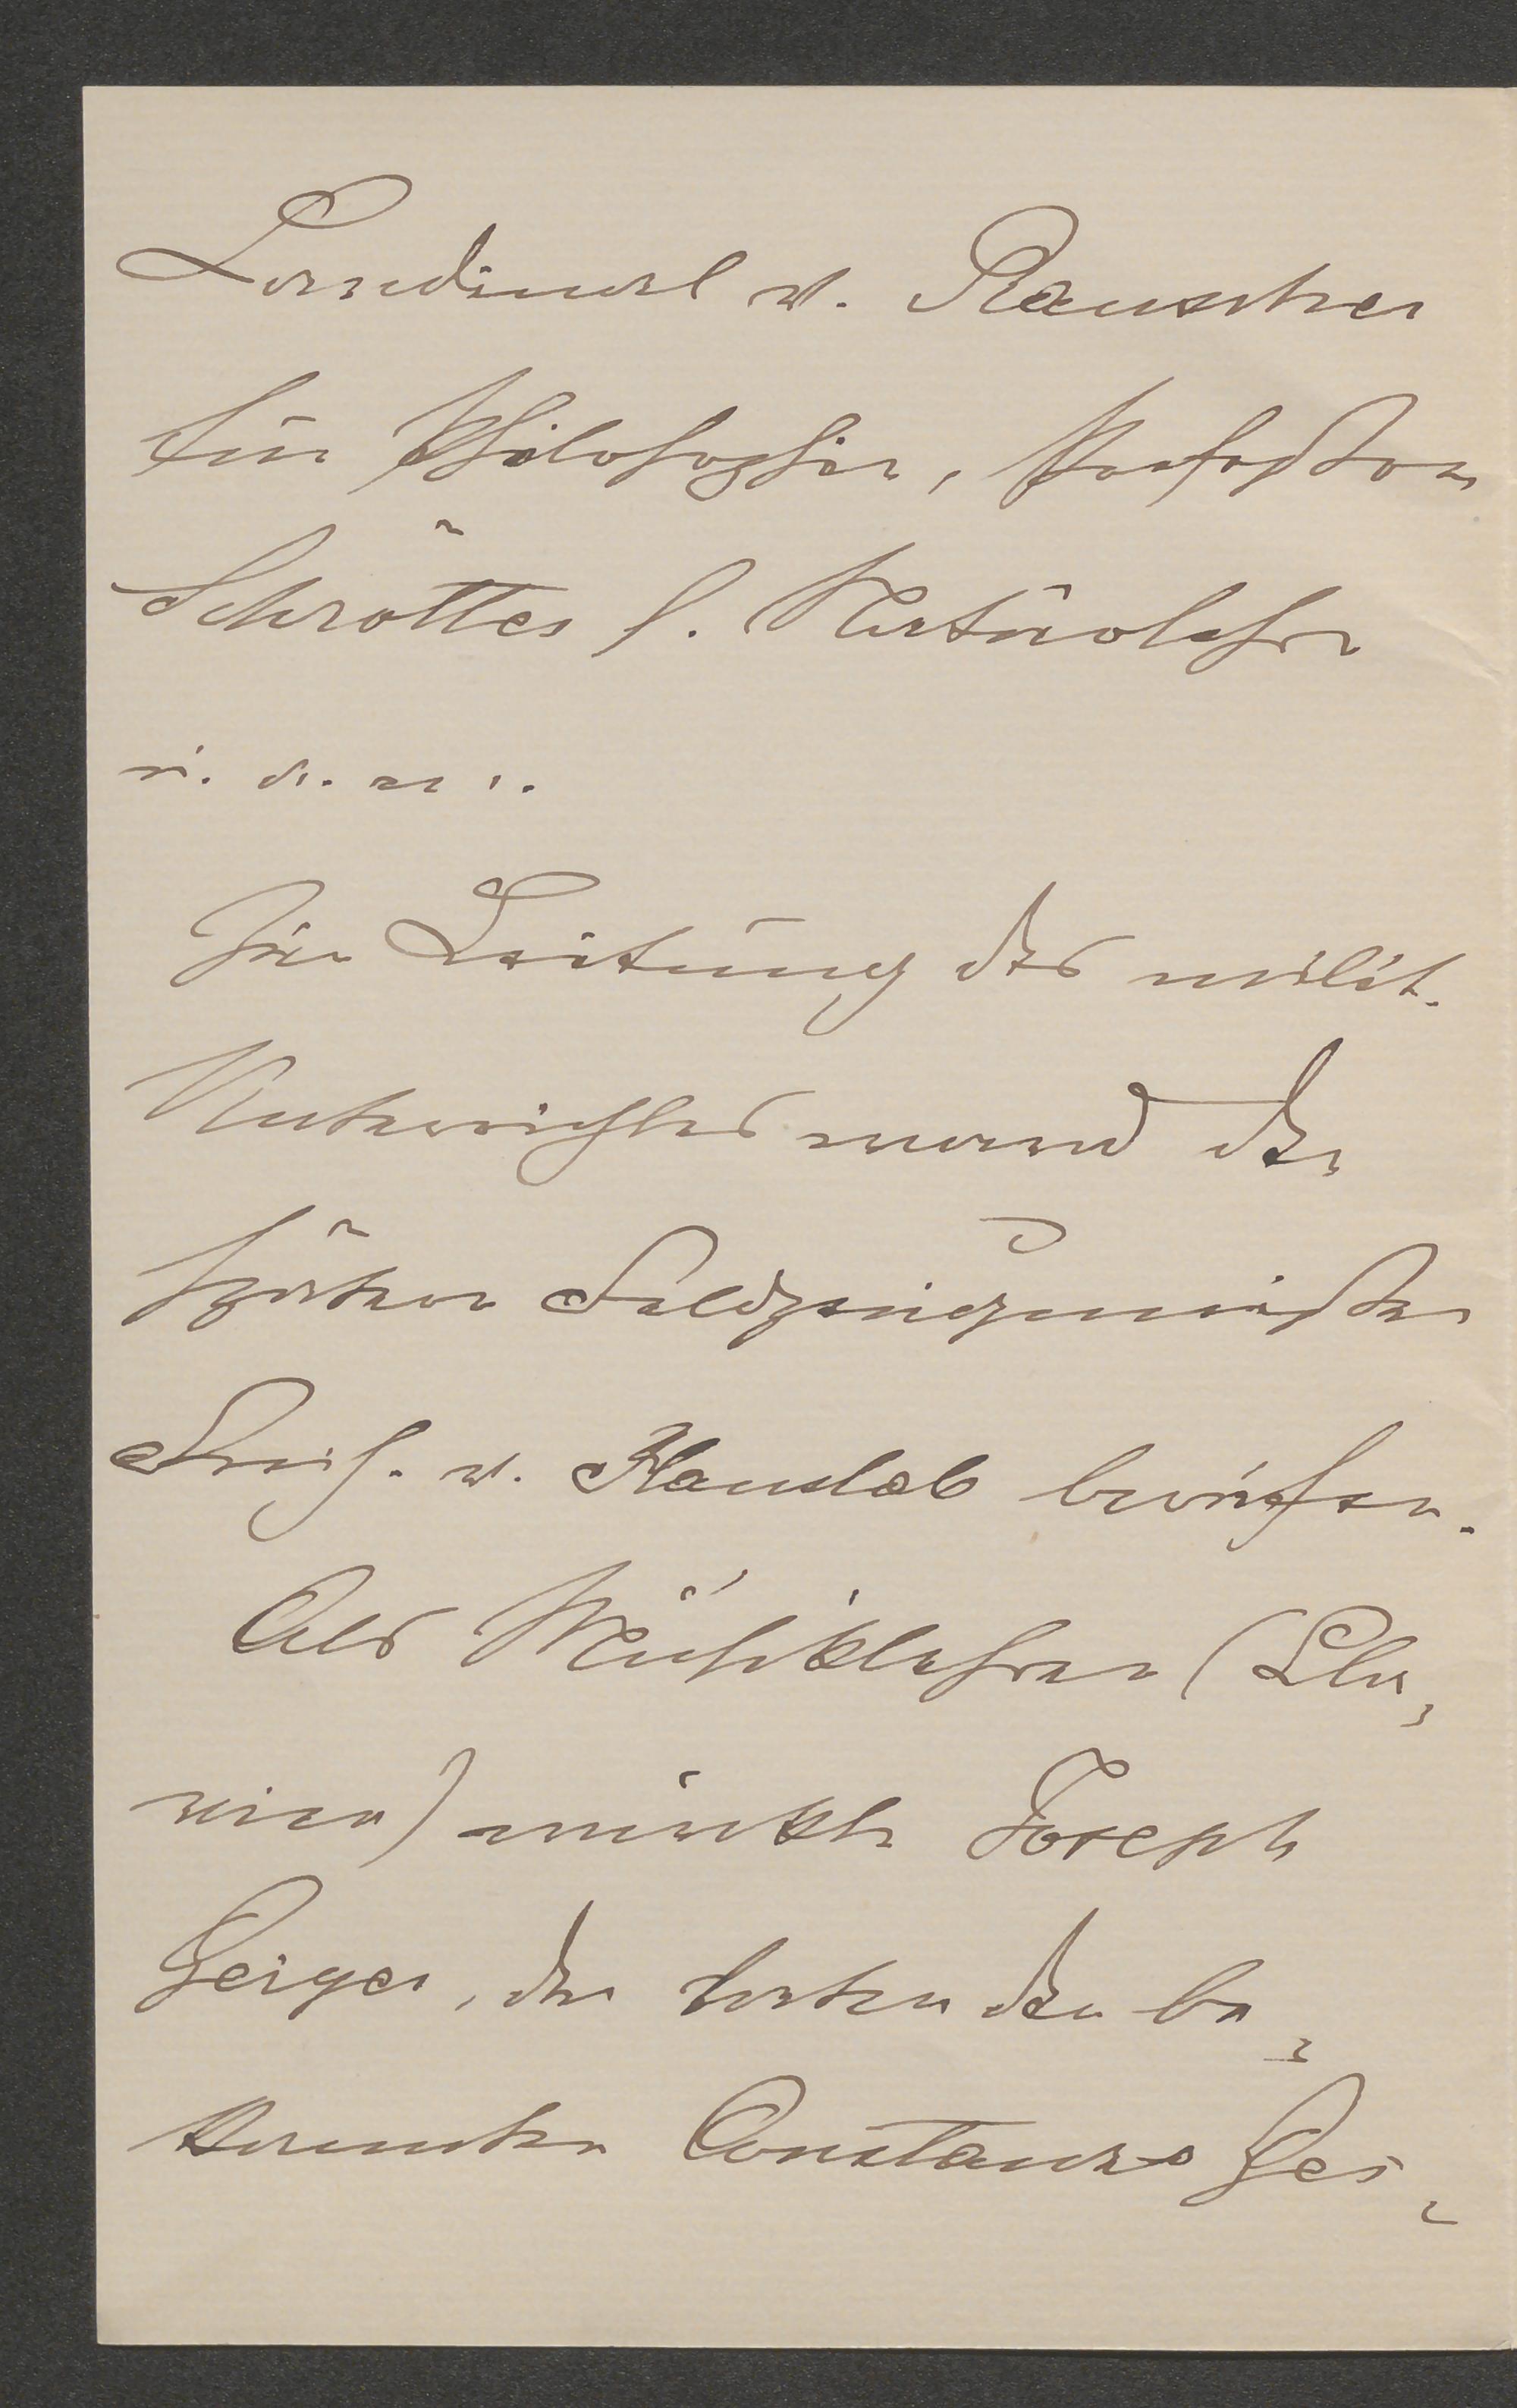 Cardinal v. Rauscher
für Philosophie, Professor
Schrötter f. Naturlehre
u. s. w.
Zur Leitung des milit.
Unterrichtes ward der
spätere Feldzeugmeister
Freih. v. Hauslab berufen.
Als Musiklehrer (Cla-
vier) wirkte Joseph
Geiger, der Vater der be-
kannten Constanze Gei-